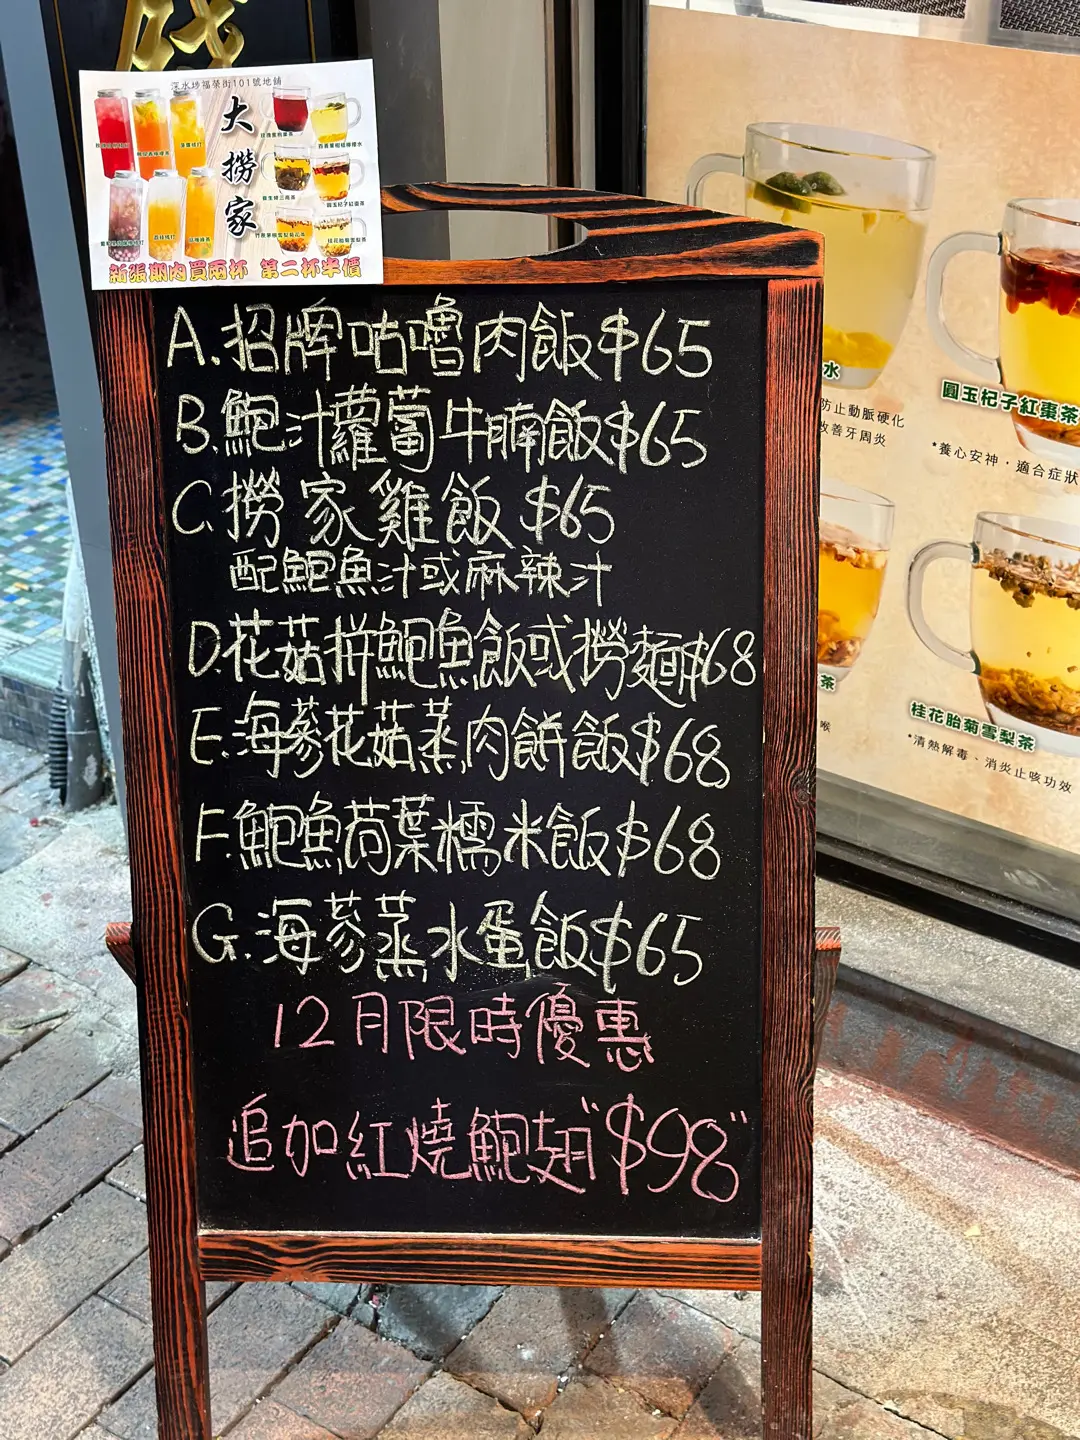 深水埗福榮街101號地鋪
大撈家
新張期內買兩杯 第二杯半價
A.招牌咕嚕肉飯$65
B.鮑汁蘿蔔牛腩飯$65
C.撈家雞飯 $65
配鮑魚汁或麻辣汁
D.花菇拼鮑魚飯或撈麵$68
E.海參花菇蒸肉餅飯$68
F.鮑魚荷葉糯米飯$68
G.海參蒸水蛋飯$65
12月限時優惠
追加紅燒鮑翅"$98"
水
防止動脈硬化
改善牙周炎
圓玉杞子紅棗茶
*養心安神，適合症狀
茶
喉
桂花胎菊雪梨茶
*清熱解毒、消炎止咳功效